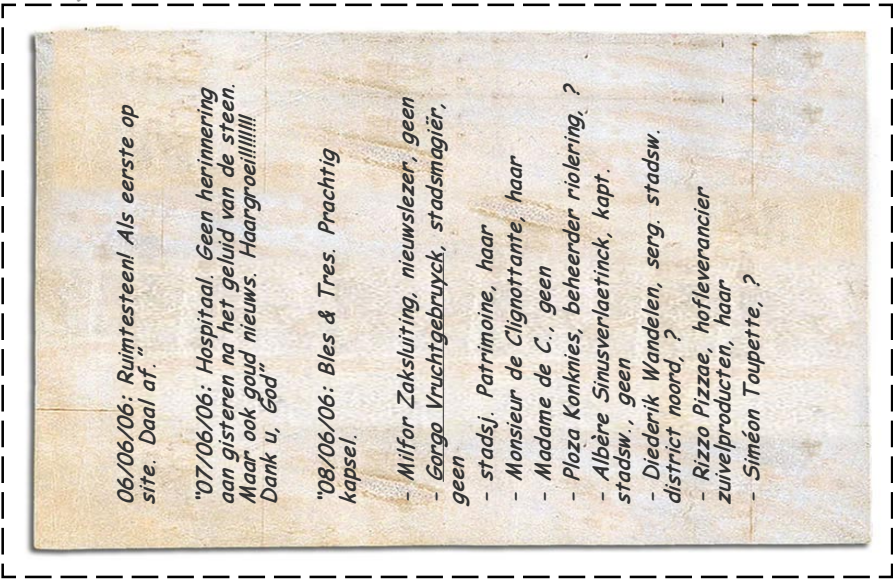 06/06/06: Ruimtesteen! Als eerste op
site. Daal af."
"07/06/06: Hospitaal. Geen herinnering
aan gisteren na het geluid van de steen.
Maar ook goud nieuws. Haargroei!!!!!!!!!
Dank u, God"
"08/06/06: Bles & Tres. Prachtig
kapsel.
- Milfor Zaksluiting, nieuwslezer, geen
- Gorgo Vruchtgebruyck, stadsmagiër,
geen
- stadsj. Patrimoine, haar
- Monsieur de Clignottante, haar
- Madame de C., geen
- Ploza Konknies, beheerder riolering, ?
- Albère Sinusverlaetinck, kapt.
stadsw., geen
- Diederik Wandelen, serg. stadsw.
district noord, ?
- Rizzo Pizzae, hofleverancier
zuivelproducten, haar
- Siméon Toupette, ?